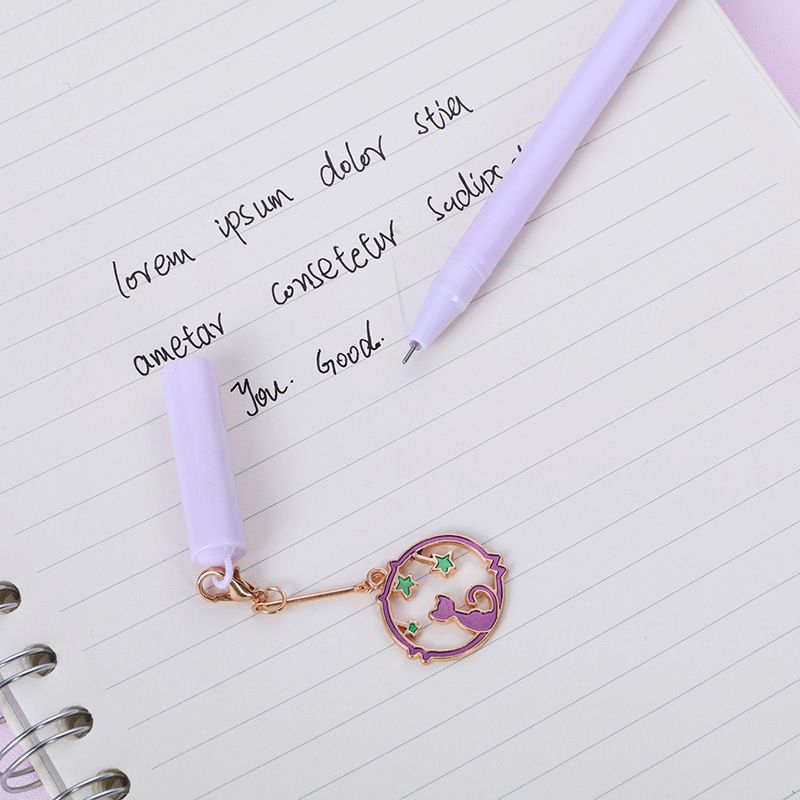 lorem ipsum dolor stia
ametar consetetur sadips
You. Good.